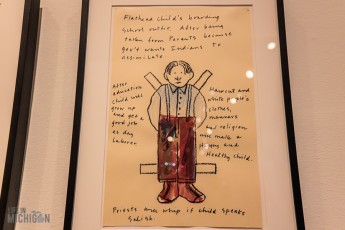 Flathead child's boarding
school outfit. After being
taken from Parents because
gov't wants Indians to
assimilate
After
education
child will
grow up
and get a
good job
as day
Laborer
Haircut and
white people's
clothes,
manners
and religion
will make a
Happy and
Healthy child.
Priests can whip if child speaks
Salish
LIFE IN
MICHIGAN